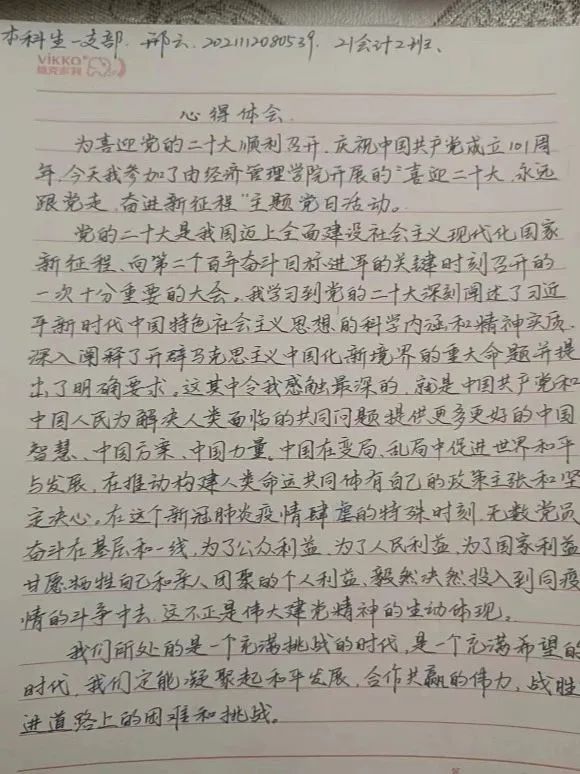 本科生一支部. 邢云. 2021112080539. 21会计2班.
VIKKO®
维克多利
心得体会.
为喜迎党的二十大顺利召开.庆祝中国共产党成立101周
年,今天我参加了由经济管理学院开展的“喜迎二十大,永远
跟党走,奋进新征程”主题党日活动。
党的二十大是我国迈上全面建设社会主义现代化国家
新征程、向第二个百年奋斗目标进军的关键时刻召开的
一次十分重要的大会。我学习到党的二十大深刻阐述了习近
平新时代中国特色社会主义思想的科学内涵和精神实质,
深入阐释了开辟马克思主义中国化新境界的重大命题并提
出了明确要求。这其中令我感触最深的,就是中国共产党和
中国人民为解决人类面临的共同问题提供更多更好的中国
智慧、中国方案、中国力量。中国在变局、乱局中促进世界和平
与发展,在推动构建人类命运共同体有自己的政策主张和坚
定决心。在这个新冠肺炎疫情肆虐的特殊时刻,无数党员
奋斗在基层和一线,为了公众利益,为了人民利益,为了国家利益
甘愿牺牲自己和亲人团聚的个人利益,毅然决然投入到同疫
情的斗争中去,这不正是伟大建党精神的生动体现。
我们所处的是一个充满挑战的时代,是一个充满希望的
时代,我们定能凝聚起和平发展,合作共赢的伟力,战胜
进道路上的困难和挑战。